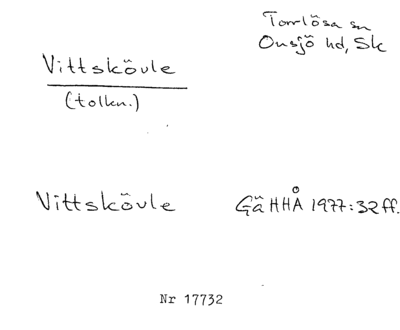 Torrlösa sn
Onsjö hd, Sk
Vittskövle
(tolkn.)
Vittskövle Gä HHÅ 1977:32 ff.
Nr 17732